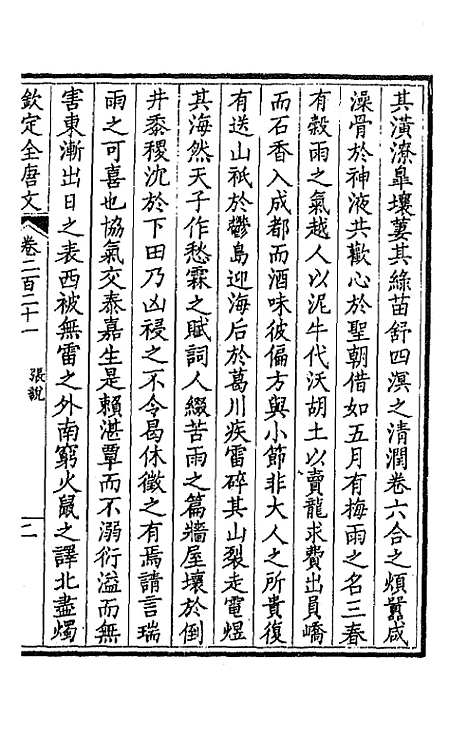 其潢潦皐壤萋其綠苗舒四溟之清潤卷六合之煩囂咸
澡骨於神液共歡心於聖朝借如五月有梅雨之名三春
有穀雨之氣越人以泥牛代沃胡土以賣龍求費出員嶠
而石香入成都而酒味彼偏方與小節非大人之所貴復
有送山祇於鬱島迎海后於葛川疾雷碎其山裂走電煜
其海然天子作愁霖之賦詞人綴苦雨之篇牆屋壤於倒
井黍稷沈於下田乃凶祲之不令曷休徵之有焉請言瑞
雨之可喜也協氣交泰嘉生是賴湛覃而不溺衍溢而無
害東漸出日之表西被無雷之外南窮火鼠之譯北盡燭
欽定全唐文
卷二百二十一
張說
二